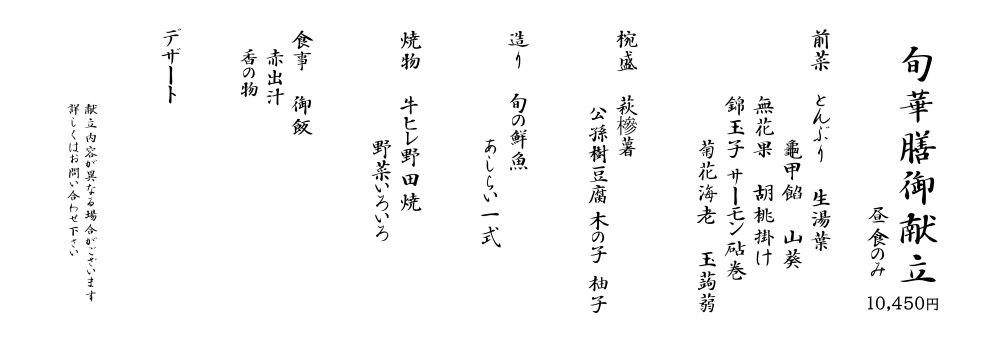 旬華膳御献立
昼食のみ
10,450円
前菜 とんぶり 生湯葉
亀甲餡 山葵
無花果 胡桃掛け
錦玉子 サーモン砧巻
菊花海老 玉蒟蒻
椀盛 萩糝薯
公孫樹豆腐 木の子 柚子
造り 旬の鮮魚
あしらい一式
焼物 牛ヒレ野田焼
野菜いろいろ
食事 御飯
赤出汁
香の物
デザート
献立内容が異なる場合がございます
詳しくはお問い合わせ下さい